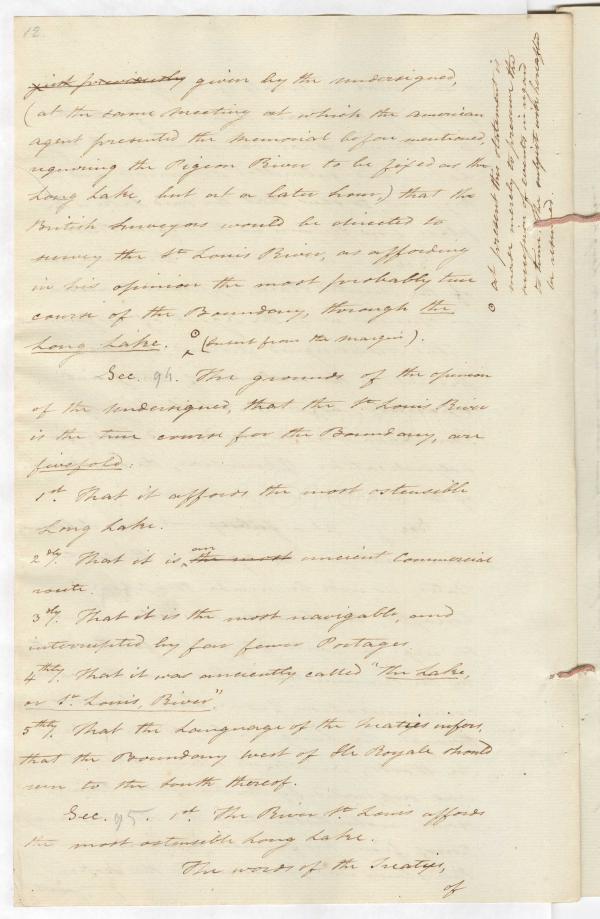 12.
just previously given by the undersigned,
(at the same meeting at which the american
agent presented the memorial before mentioned,
requiring the Pigeon River to be fixed as the
Long Lake, but at a later hour,) that the
British Surveyors would be directed to
survey the St. Louis River, as affording
in his opinion the most probably true
course of the Boundary, through the
Long Lake. ⊙ (Insert from the margin).
Sec. 94. The grounds of the opinion
of the undersigned, that the St. Louis River
is the true course for the Boundary, are
fivefold:
1st. That it affords the most ostensible
Long Lake.
2dly. That it is an the most ancient Commercial
route.
3dly. That it is the most navigable, and
interrupted by far fewer Portages.
4thly. That it was anciently called "The Lake,
or St. Louis, River".
5thly. That the Language of the Treaties infers,
that the Boundary west of Ile Royale should
run to the South thereof.
Sec. 95. 1st. The River St. Louis affords
the most ostensible Long Lake.
The words of the Treaties,
of
⊙ at present this statement is
made merely to preserve the
succession of events in regard
to time. The subject will hereafter
be resumed.